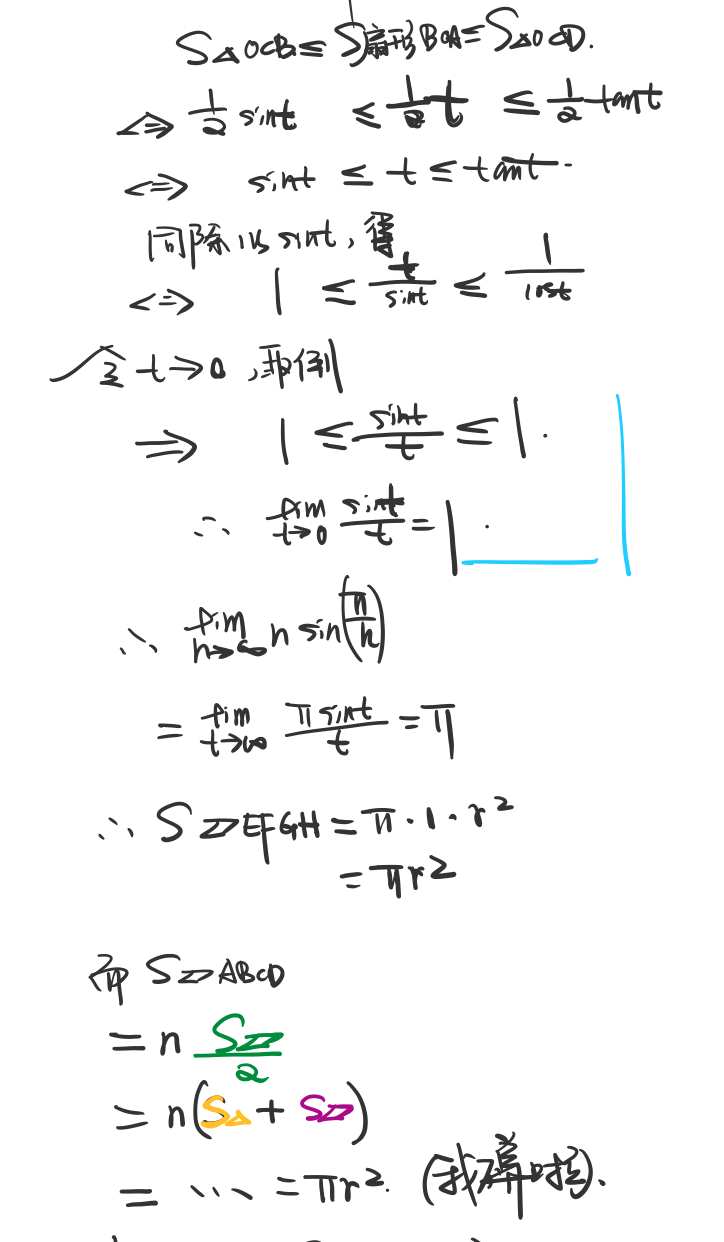 S△OCB≤S扇形BOA≤S△OCD.
⟺ 1/2 sint ≤ 1/2 t ≤ 1/2 tant
⟺ sint ≤ t ≤ tant.
同除以sint,得
⟺ 1 ≤ t/sint ≤ 1/cost
令 t→0,取倒
⇒ 1 ≤ sint/t ≤ 1.
∴ lim t→0 sint/t = 1.
∴ lim n→∞ n sin(π/n)
= lim t→∞ πsint/t = π
∴ S▱EFGH = π·1·r²
= πr²
而 S▱ABCD
= n S▱/2
= n(S△ + S▱)
= ⋯ = πr². (我算啦).